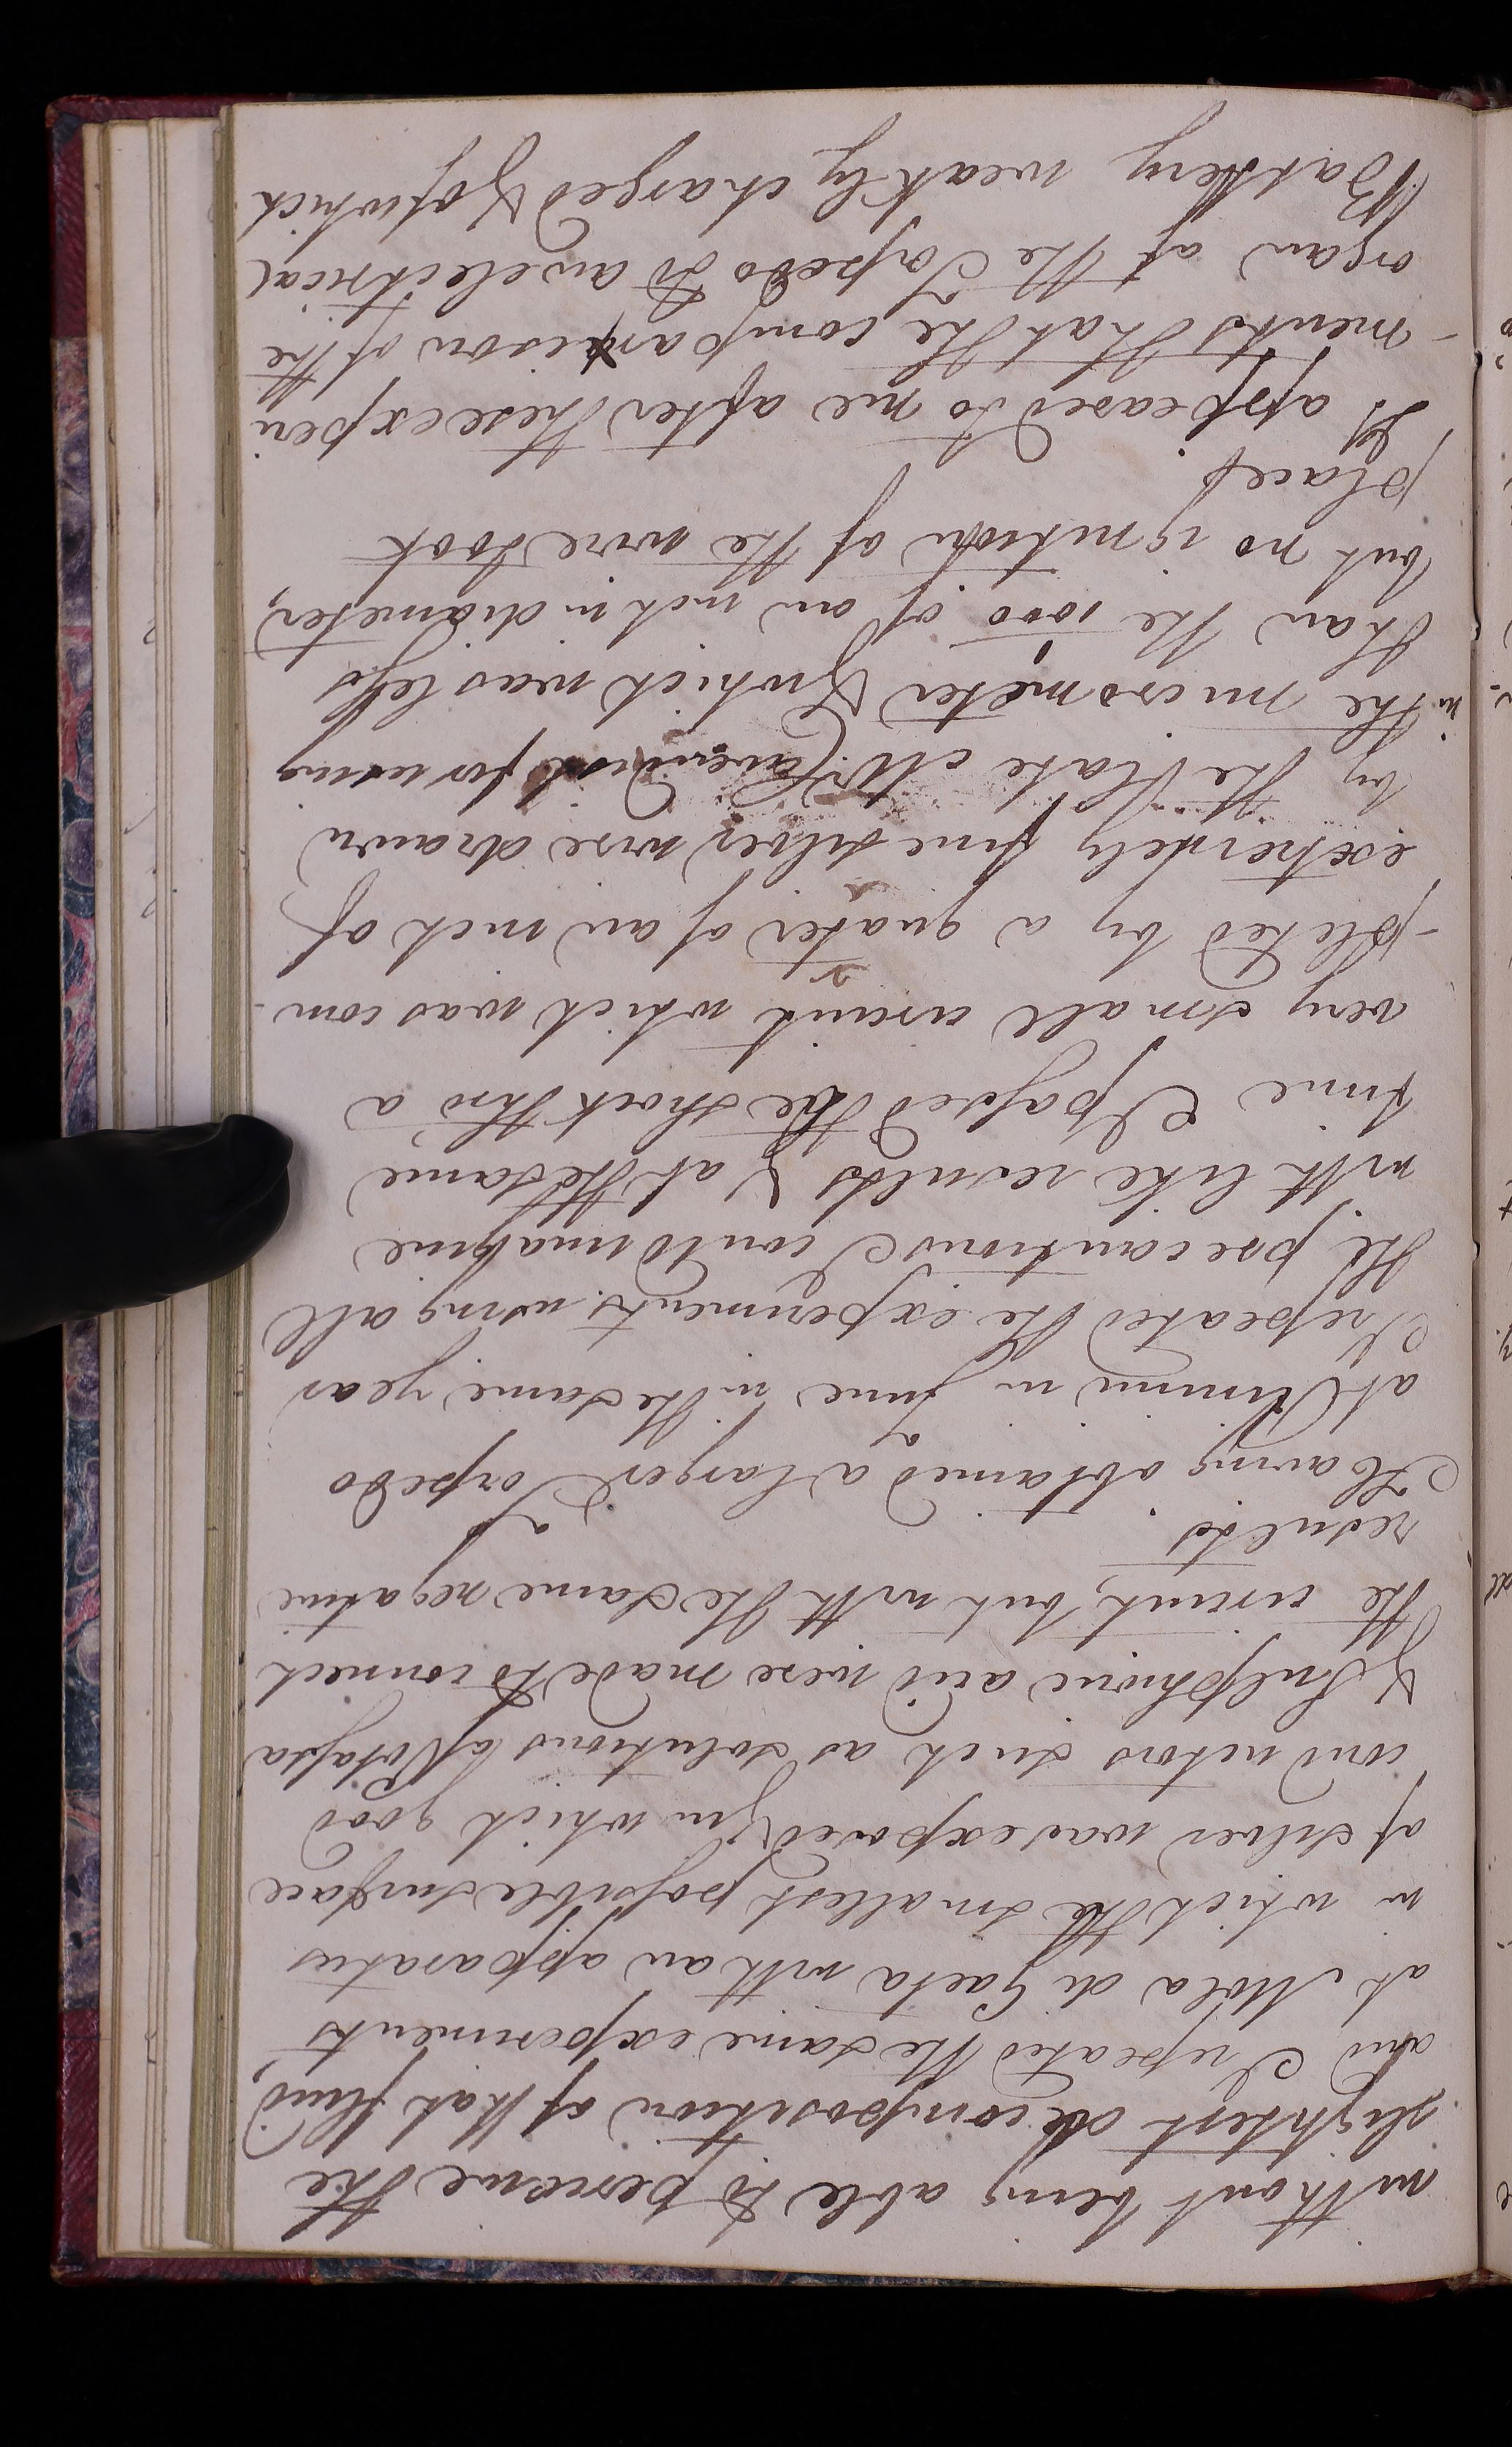 without being able to perceive the
slightest decomposition of that fluid,
and I repeated the same experiments
at Mola di Gaeta with an apparatus
in which the smallest possible surface
of silver was exposed, & in which good
conductors such as solutions of Potassa
& Sulphuric acid were made to connect
the circuit, but with the same negative
results
Having obtained a larger Torpedo
at Rimini in June in the same year
I repeated the experiments using all
the precautions I could imagine
with like results & at the same
time I passed the shock thro' a
very small circuit which was com-
-pleted by a quarter of an inch of
extremely fine silver wire drawn
by the late Mr Cavendish for using
in the micrometer & which was less
than the 1/1000 of an inch in diameter,
but no ignition of the wire took
place.
It appeared to me after these experi
-ments that the comparison of the
organ of the Torpedo to an electrical
Battery weakly charged & of which